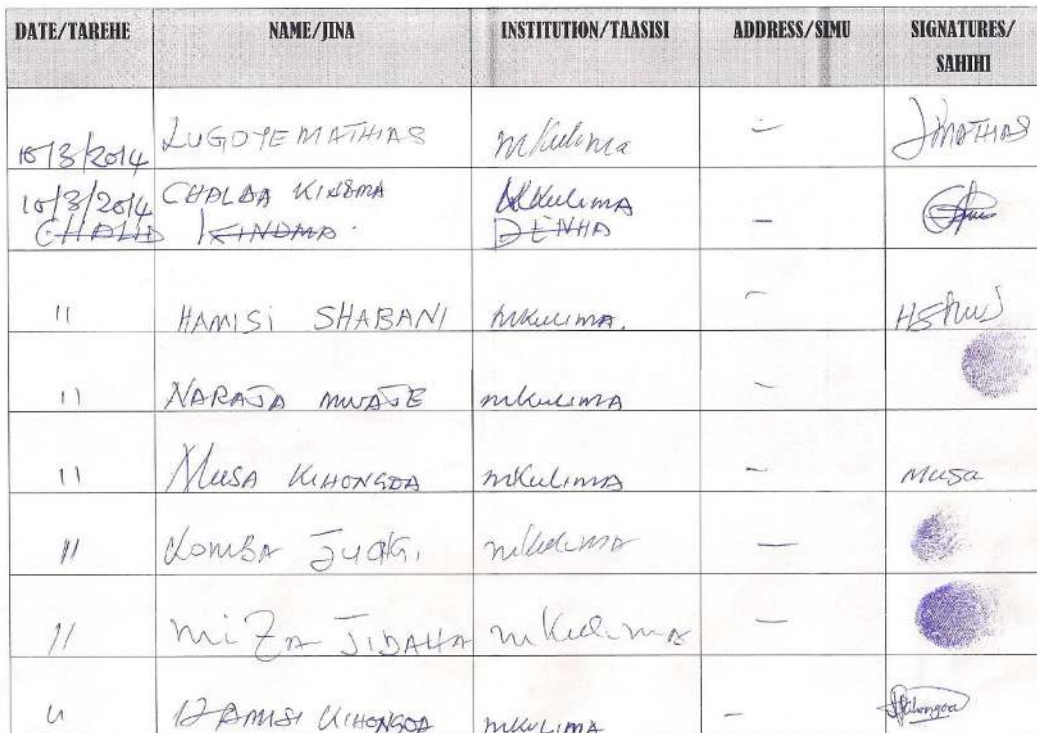 DATE/TAREHE NAME/JINA INSTITUTION/TAASISI ADDRESS/SIMU SIGNATURES/
SAHIHI
10/3/2014 LUGOYE MATHIAS mkulima - JMATHIAS
10/3/2014 CHALDA KINDMA Mkulima -
CHALID KINDMA. DENHA
11 HAMISI SHABANI mkulima. -
11 NARAJA MWAJE mkulima -
11 MUSA KIHONGOA mkulima - Musa
11 KOMBA mkulima -
11 MiZA JIDAHA mkulima -
11 HAMISI KIHONGOA mkulima -